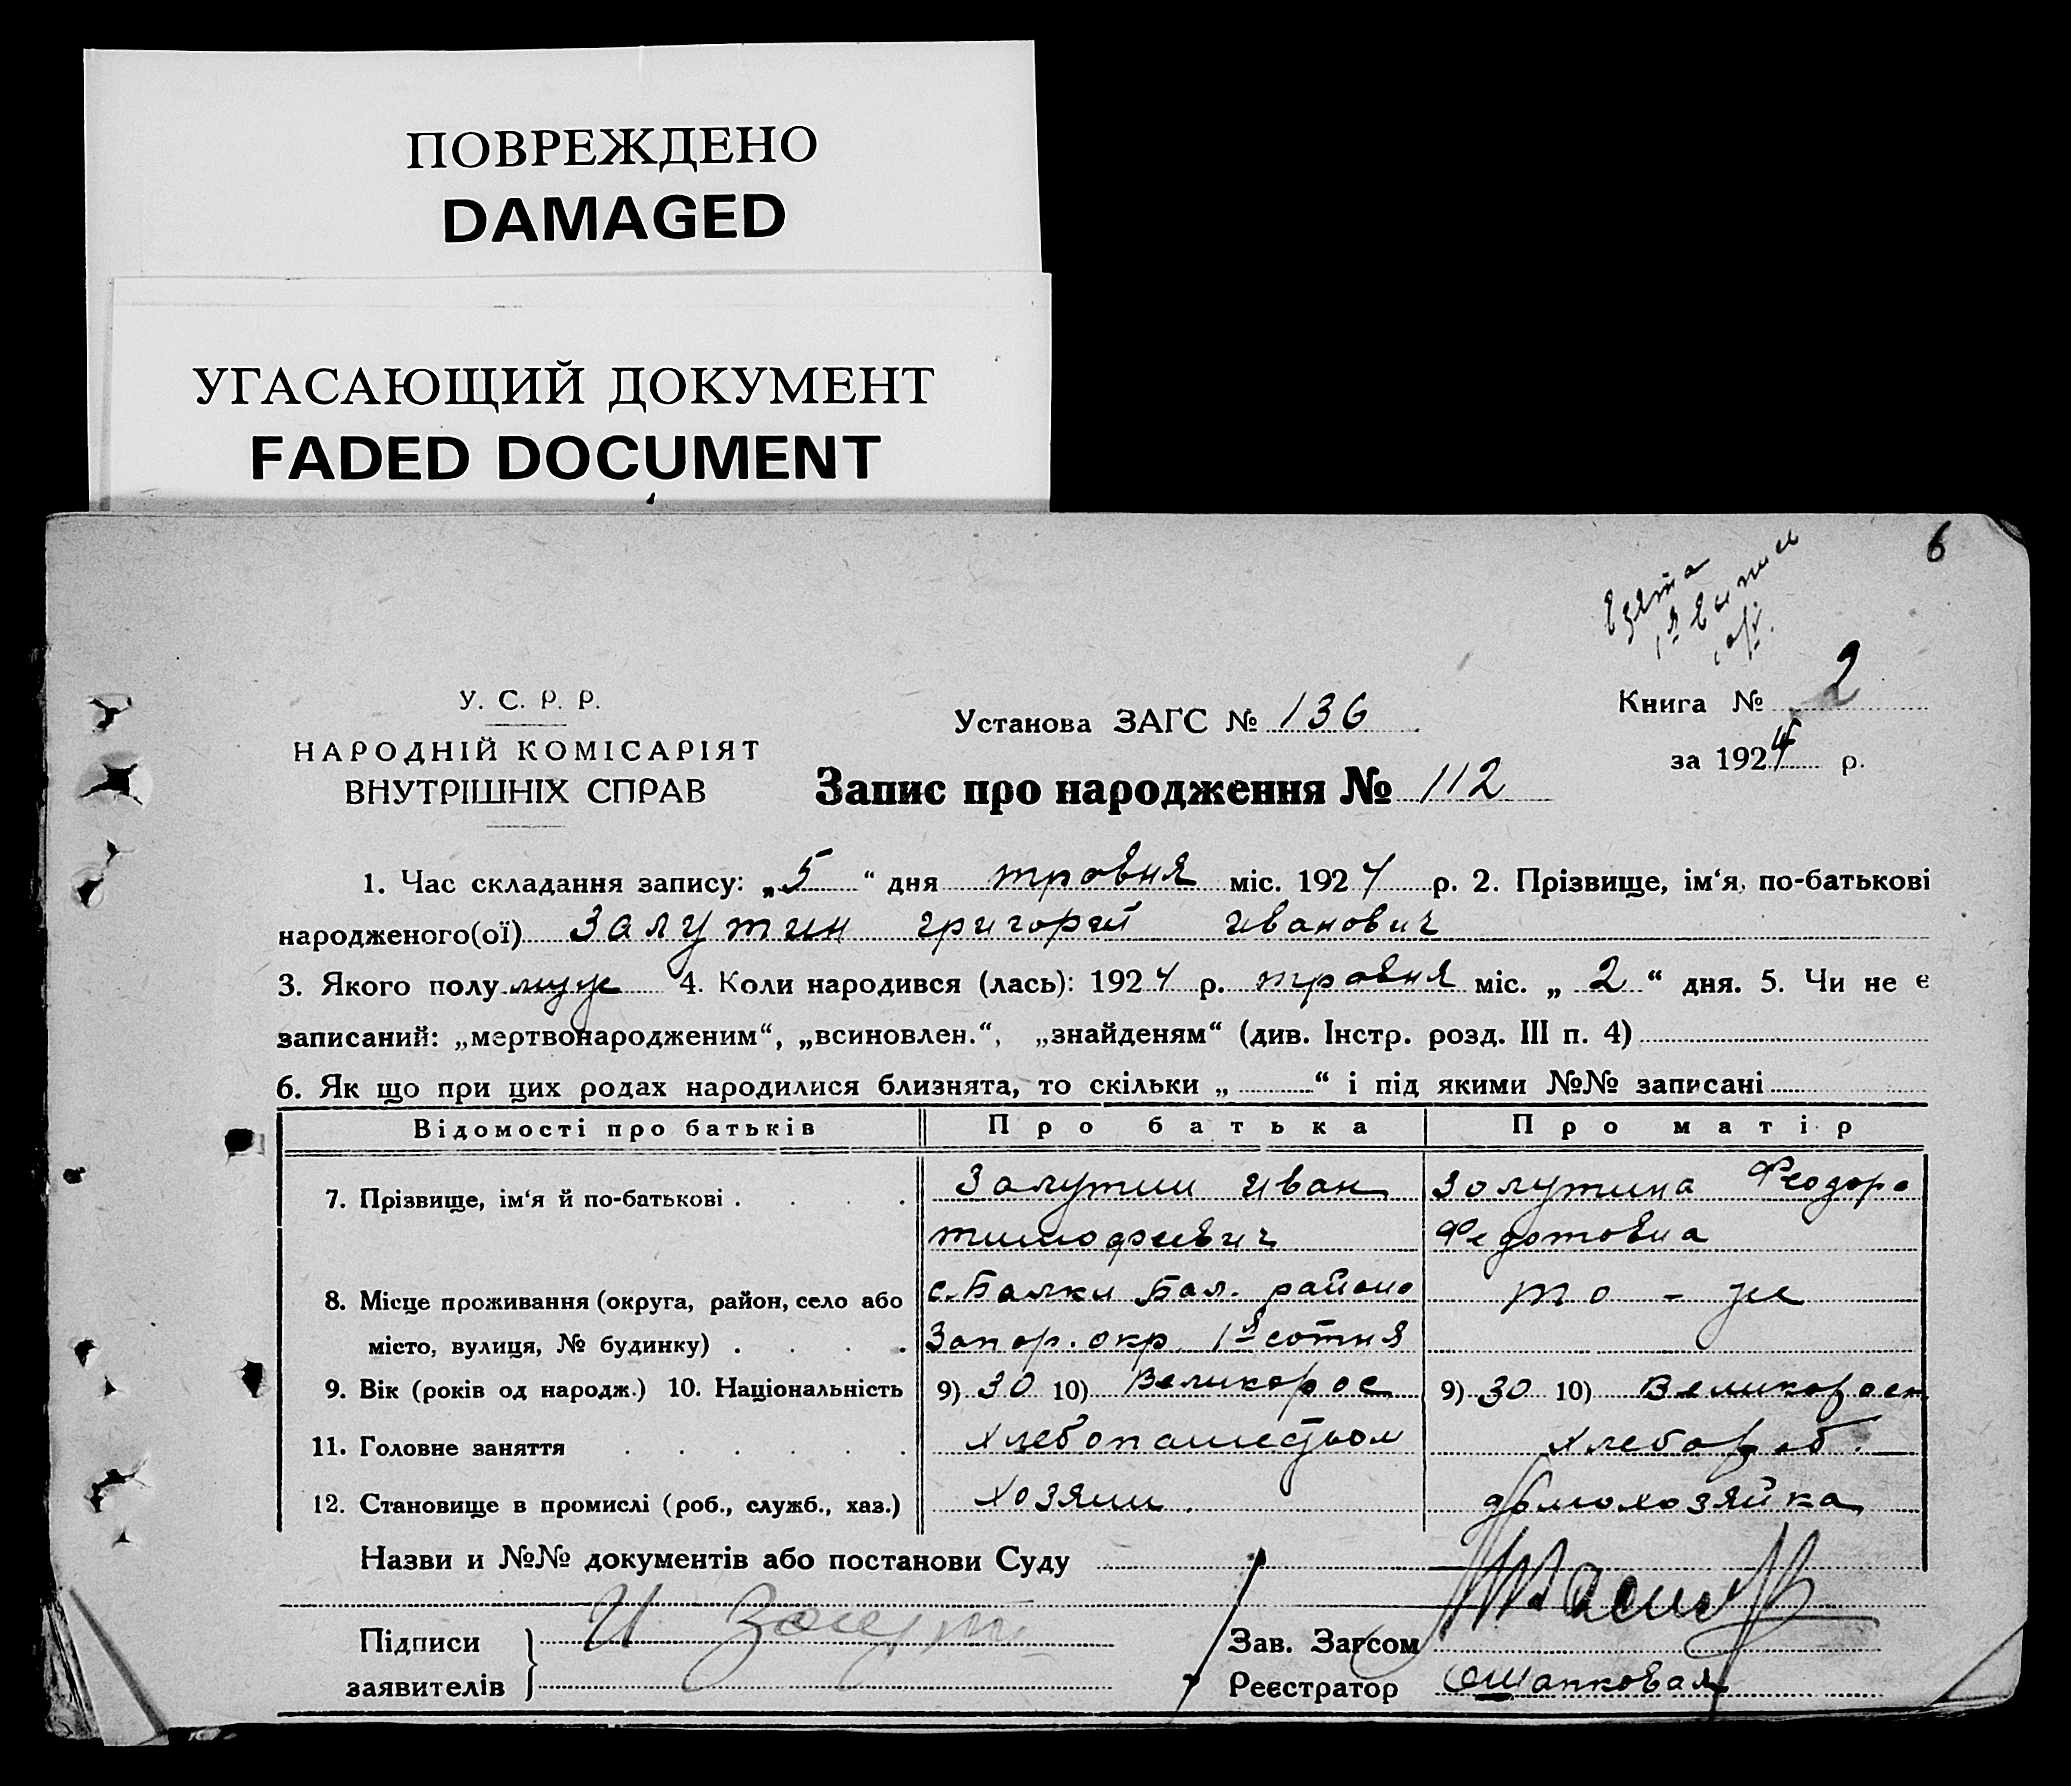 ПОВРЕЖДЕНО
DAMAGED
УГАСАЮЩИЙ ДОКУМЕНТ
FADED DOCUMENT
6
Взята
1я випис
У. С. Р. Р.
НАРОДНІЙ КОМІСАРІЯТ
ВНУТРІШНІХ СПРАВ
Установа ЗАГС № 136
Книга № 2
за 1924 р.
Запис про народження № 112
1. Час складання запису: „5“ дня травня міс. 1924 р. 2. Прізвище, ім‘я, по-батькові
народженого(ої) Залутин Григорий Иванович
3. Якого полу муж 4. Коли народився (лась): 1924 р. травня міс. „2“ дня. 5. Чи не є
записаний: „мертвонародженим“, „всиновлен.“, „знайденям“ (див. Інстр. розд. III п. 4)
6. Як що при цих родах народилися близнята, то скільки „ “ і під якими №№ записані
Відомості про батьків Про батька Про матір
7. Прізвище, ім‘я й по-батькові . . . . Залутин Иван Залутина Феодора
Тимофеевич Федотовна
8. Місце проживання (округа, район, село або с. Балки Бал. района то-же
місто, вулиця, № будинку) . . . . Запор. окр 1я сотня
9. Вік (років од народж.) 10. Національність 9) 30 10) Великорос 9) 30 10) Великорос
11. Головне заняття . . . . . . Хлебопашеством Хлебороб.
12. Становище в промислі (роб., служб., хаз.) Хозяин. домохозяйка
Назви и №№ документів або постанови Суду
Підписи И Залут
заявителів
Зав. Загсом
Реєстратор Ошапковая